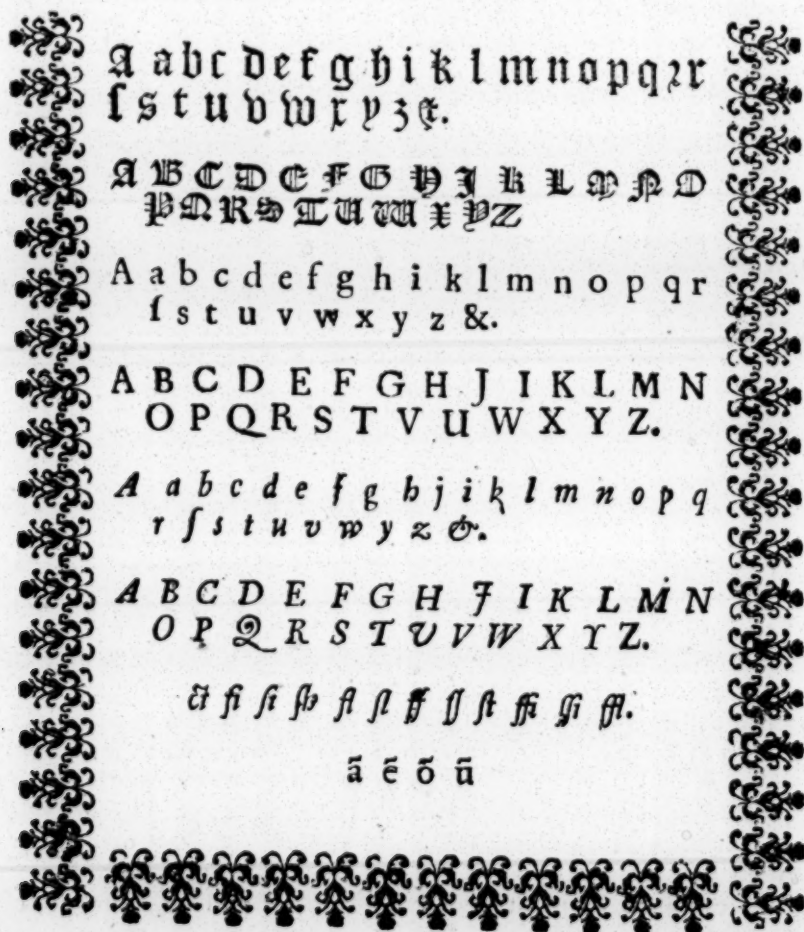 A a b c d e f g h i k l m n o p q ꝛ r
ſ s t u v w x y z &.
A B C D E F G H J K L M N O
P Q R S T U W X Y Z
A a b c d e f g h i k l m n o p q r
ſ s t u v w x y z &.
A B C D E F G H J I K L M N
O P Q R S T V U W X Y Z.
A a b c d e f g h j i k l m n o p q
r ſ s t u v w y z &.
A B C D E F G H J I K L M N
O P Q R S T U V W X Y Z.
ct fi ſi ſh fl ſl ff ſſ ſt ffi ſſi ffl.
ã ẽ õ ũ